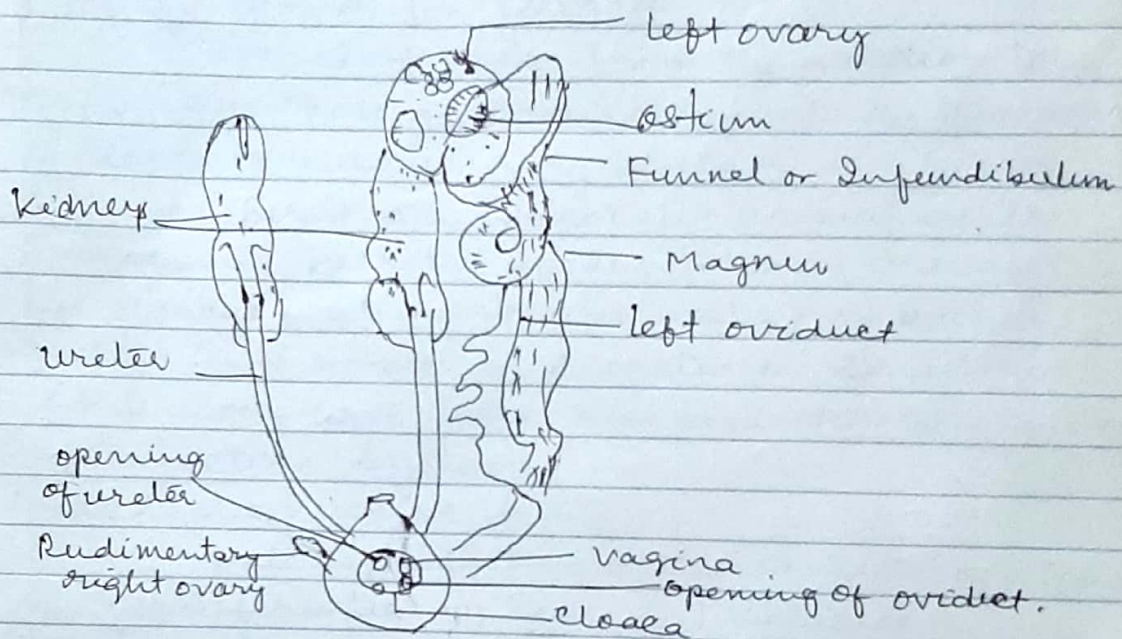 left ovary
ostium
Funnel or Infundibulum
Kidneys
Magnum
left oviduct
ureter
opening
of ureter
Rudimentary
right ovary
vagina
opening of oviduct.
cloaca